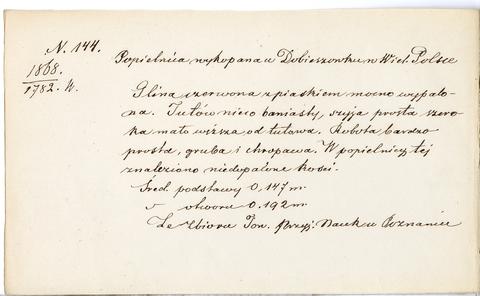 N. 144.
1868.
1782. W.
Popielnica wykopana w Dobieszewku w Wiel. Polsce
Glina czerwona z piaskiem mocno wypalo-
na. Tułów nieco baniasty, szyja prosta szero-
ka mało wyższa od tułowa. Robota bardzo
prosta, gruba i chropawa. W popielnicy tej
znaleziono niedopalone kości.
Śred. podstawy 0,147 m
" otworu 0.192 m
Ze zbioru Tow. Przyj. Nauk w Poznaniu